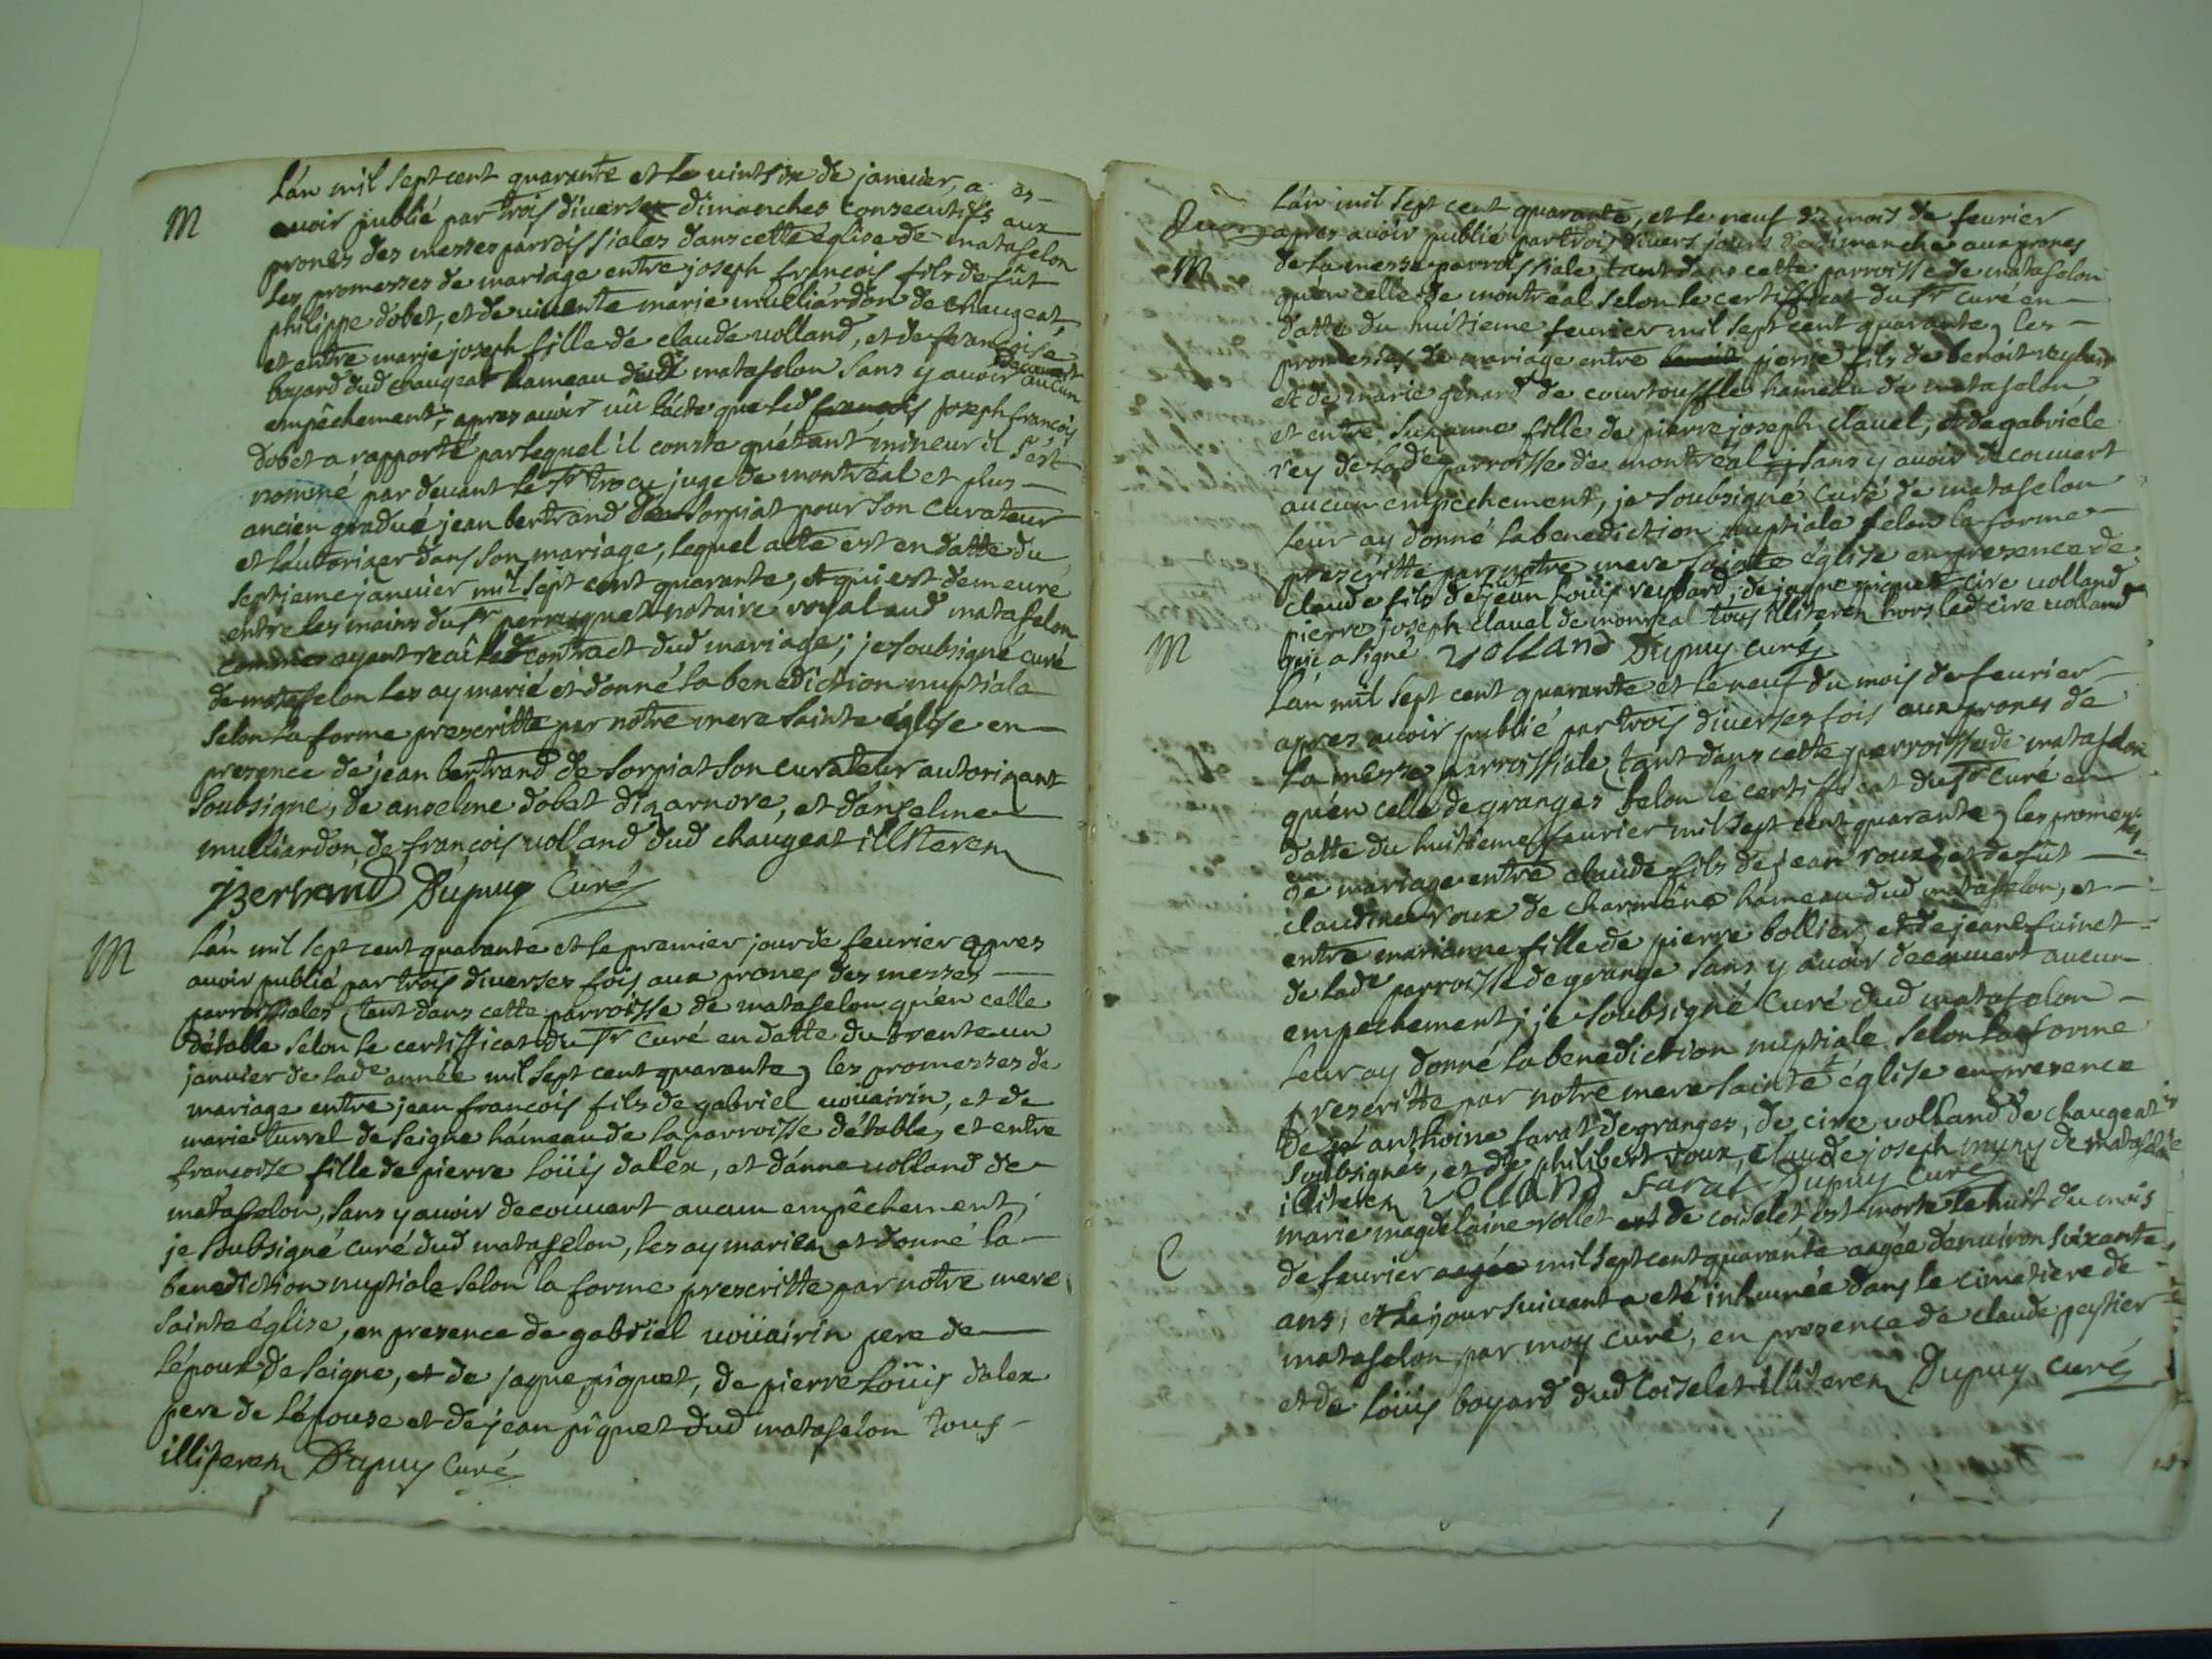 M
L'an mil sept cent quarante et le vint six de janvier, a es-
avoir publié par trois diverses dimanches consecutifs aux
prones des messes parroissiales dans cette église de mataselon
les promesses de mariage entre joseph françois fils de fût
philippe dobet, et de vivente marie mulliardon de changeat,
et entre marie joseph fille de claude volland, et de françoise
boyard dud changeat hameau dud mataselon sans y avoir decouvert aucun
empêchement, apres avoir vû lácte que led françois joseph françois
dobet a rapporté par lequel il conste quétant mineur il s'est
nommé par devant le Sr juge de montréal et plus
ancien gradué jean bertrand de sorpiat pour son curateur
et láutoriser dans son mariage, lequel acte est en datte du
septieme janvier mil sept cent quarante, et qui est demeuré
entre les mains du Sr perruquet notaire royal aud mataselon
comme ayant reçû led contract dud mariage; je soubsigné curé
de mataselon les ay marié et donné la benediction nuptiale
selon la forme prescritte par nôtre mere sainte église en
presence de jean bertrand de sorpiat son curateur autorisant
soubsigné, de anselme dobet dizarnore, et dánselme
mulliardon, de françois volland dud changeat illiteren
JBertrand Dupuy Curé
M
Lán mil sept cent quarante et le premier jour de fevrier apres
avoir publié par trois diverses fois aux prones des messes
parroissiales, tant dans cette parroisse de mataselon qu'en celle
détable selon le certifficat du Sr curé en datte du trente un
janvier de lade année mil sept cent quarante, les promesses de
mariage entre jean françois fils de gabriel voüairin, et de
marie turrel de seigne hámeau de la parroisse détable, et entre
françoise fille de pierre loüis dalex, et dánne volland de
mataselon, sans y avoir decouvert aucun empêchement,
je soubsigné curé dud mataselon, les ay mariez et donné la
benediction nuptiale selon la forme prescritte par nôtre mere
sainte église, en presence de gabriel voüairin pere de
lépoux de seigne, et de jaque piquet, de pierre loüis dalex
pere de lépouse et de jean piquet dud mataselon tous
illiteren Dupuy Curé
M
Lán mil sept cent quarante, et le neuf du mois de fevrier
apres avoir publié par trois divers jours de dimanche aux prones
de la messe parroissiale, tant dans cette parroisse de mataselon
qu'en celle de montréal selon le certifficat du Sr curé en
datte du huitieme fevrier mil sept cent quarante, les
promesses de mariage entre benoit pierre fils de benoit reybard
et de marie genard de courtouffle hameau de mataselon
et entre suzanne fille de pierre joseph clavel, et de gabriéle
rey de lade parroisse de montréal, sans y avoir decouvert
aucun empêchement, je soubsigné curé de mataselon
leur ay donné la benediction nuptiale selon la forme
prescritte par nôtre mere sainte église en presence de
claude fils de fût jean loüis reybard, de jaque piquet cire volland
pierre joseph clavel de monreal tous illiteren hors led cire volland
qui a signé volland Dupuy curé
M
Lán mil sept cent quarante et le neuf du mois de fevrier
apres avoir publié par trois diverses fois aux prones de
la messe parroissiale, tant dans cette parroisse de mataselon
qu'en celle de granges selon le certifficat du Sr curé en
datte du huitieme fevrier mil sept cent quarante, les promesses
de mariage entre claude fils de jean roux, et de fût
claudine roux de charmêne hameau dud mataselon, et
entre marianne fille de pierre bollier, et de jeane fainet
de lade parroisse de grange sans y avoir decouvert aucun
empechement, je soubsigné curé dud mataselon
leur ay donné la benediction nuptiale selon la forme
prescritte par notre mere sainte église en presence
de anthoine farat de granges, de cire volland de changeat
soubsignés, et de philibert roux, claude joseph de mataselon
illiteren volland farat Dupuy Curé
C
marie magdelaine vollet est de coiselet est morte le huit du mois
de fevrier aagée mil sept cent quarante aagée dénviron soixante
ans, et le jour suivant a eté inhumée dans le cimetiere de
mataselon par moy curé, en presence de claude peytier
et de loüis boyard dud Coiselet illiteren Dupuy curé